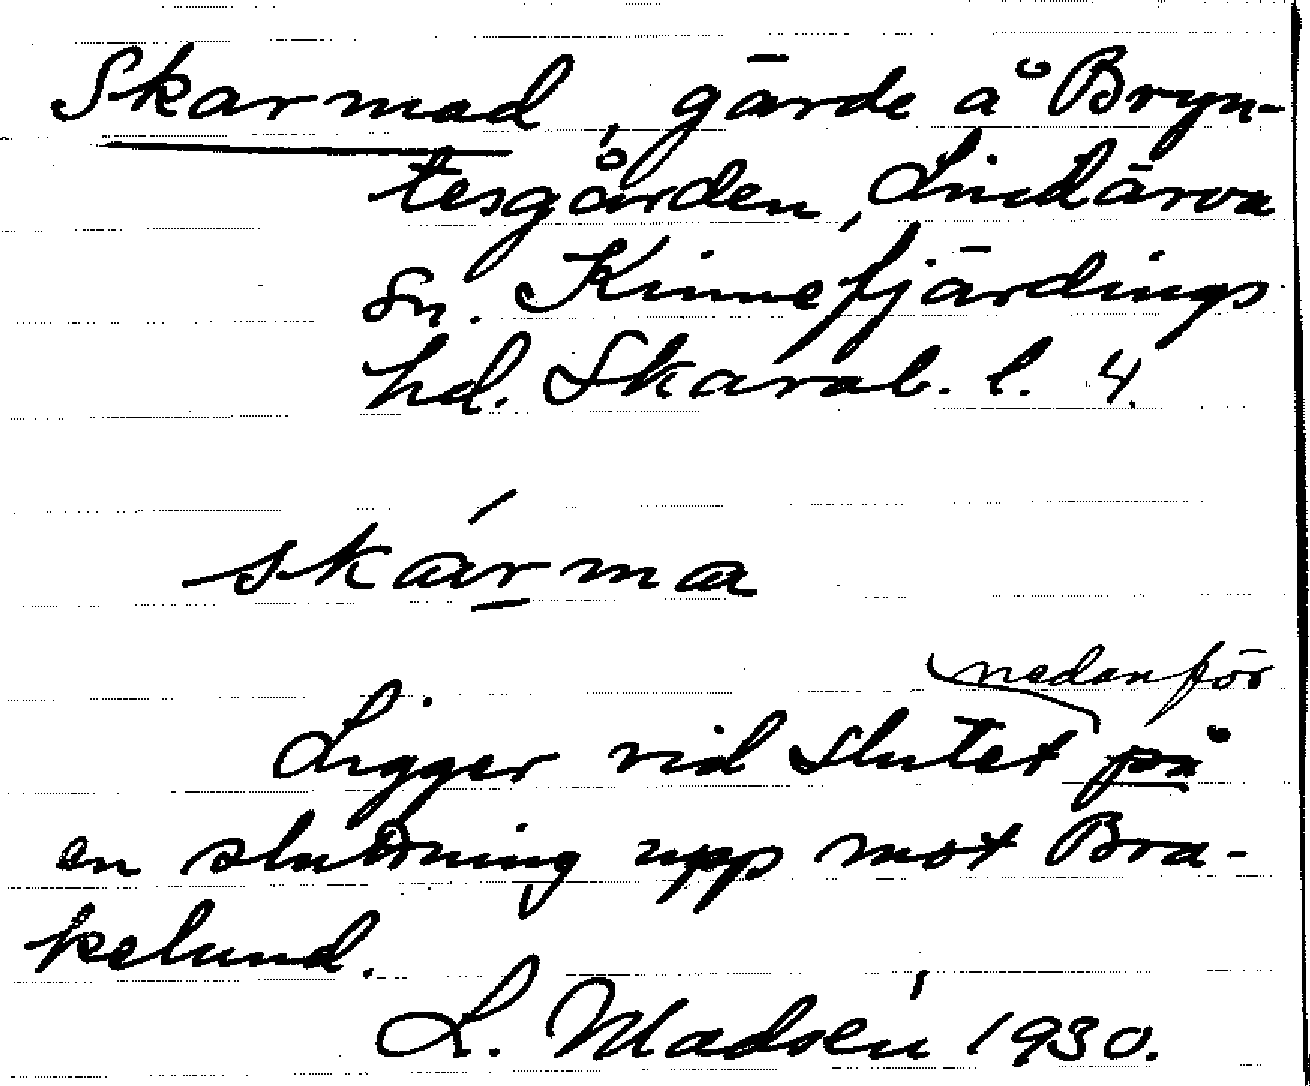 Skarmad, gärde å Bryn-
tesgården, Lindärva
sn. Kinnefjärdings
hd. Skarab. l. 4.
skárma
nedanför
Ligger vid slutet på
en sluttning upp mot Bra-
kelund.
L. Madsén 1930.